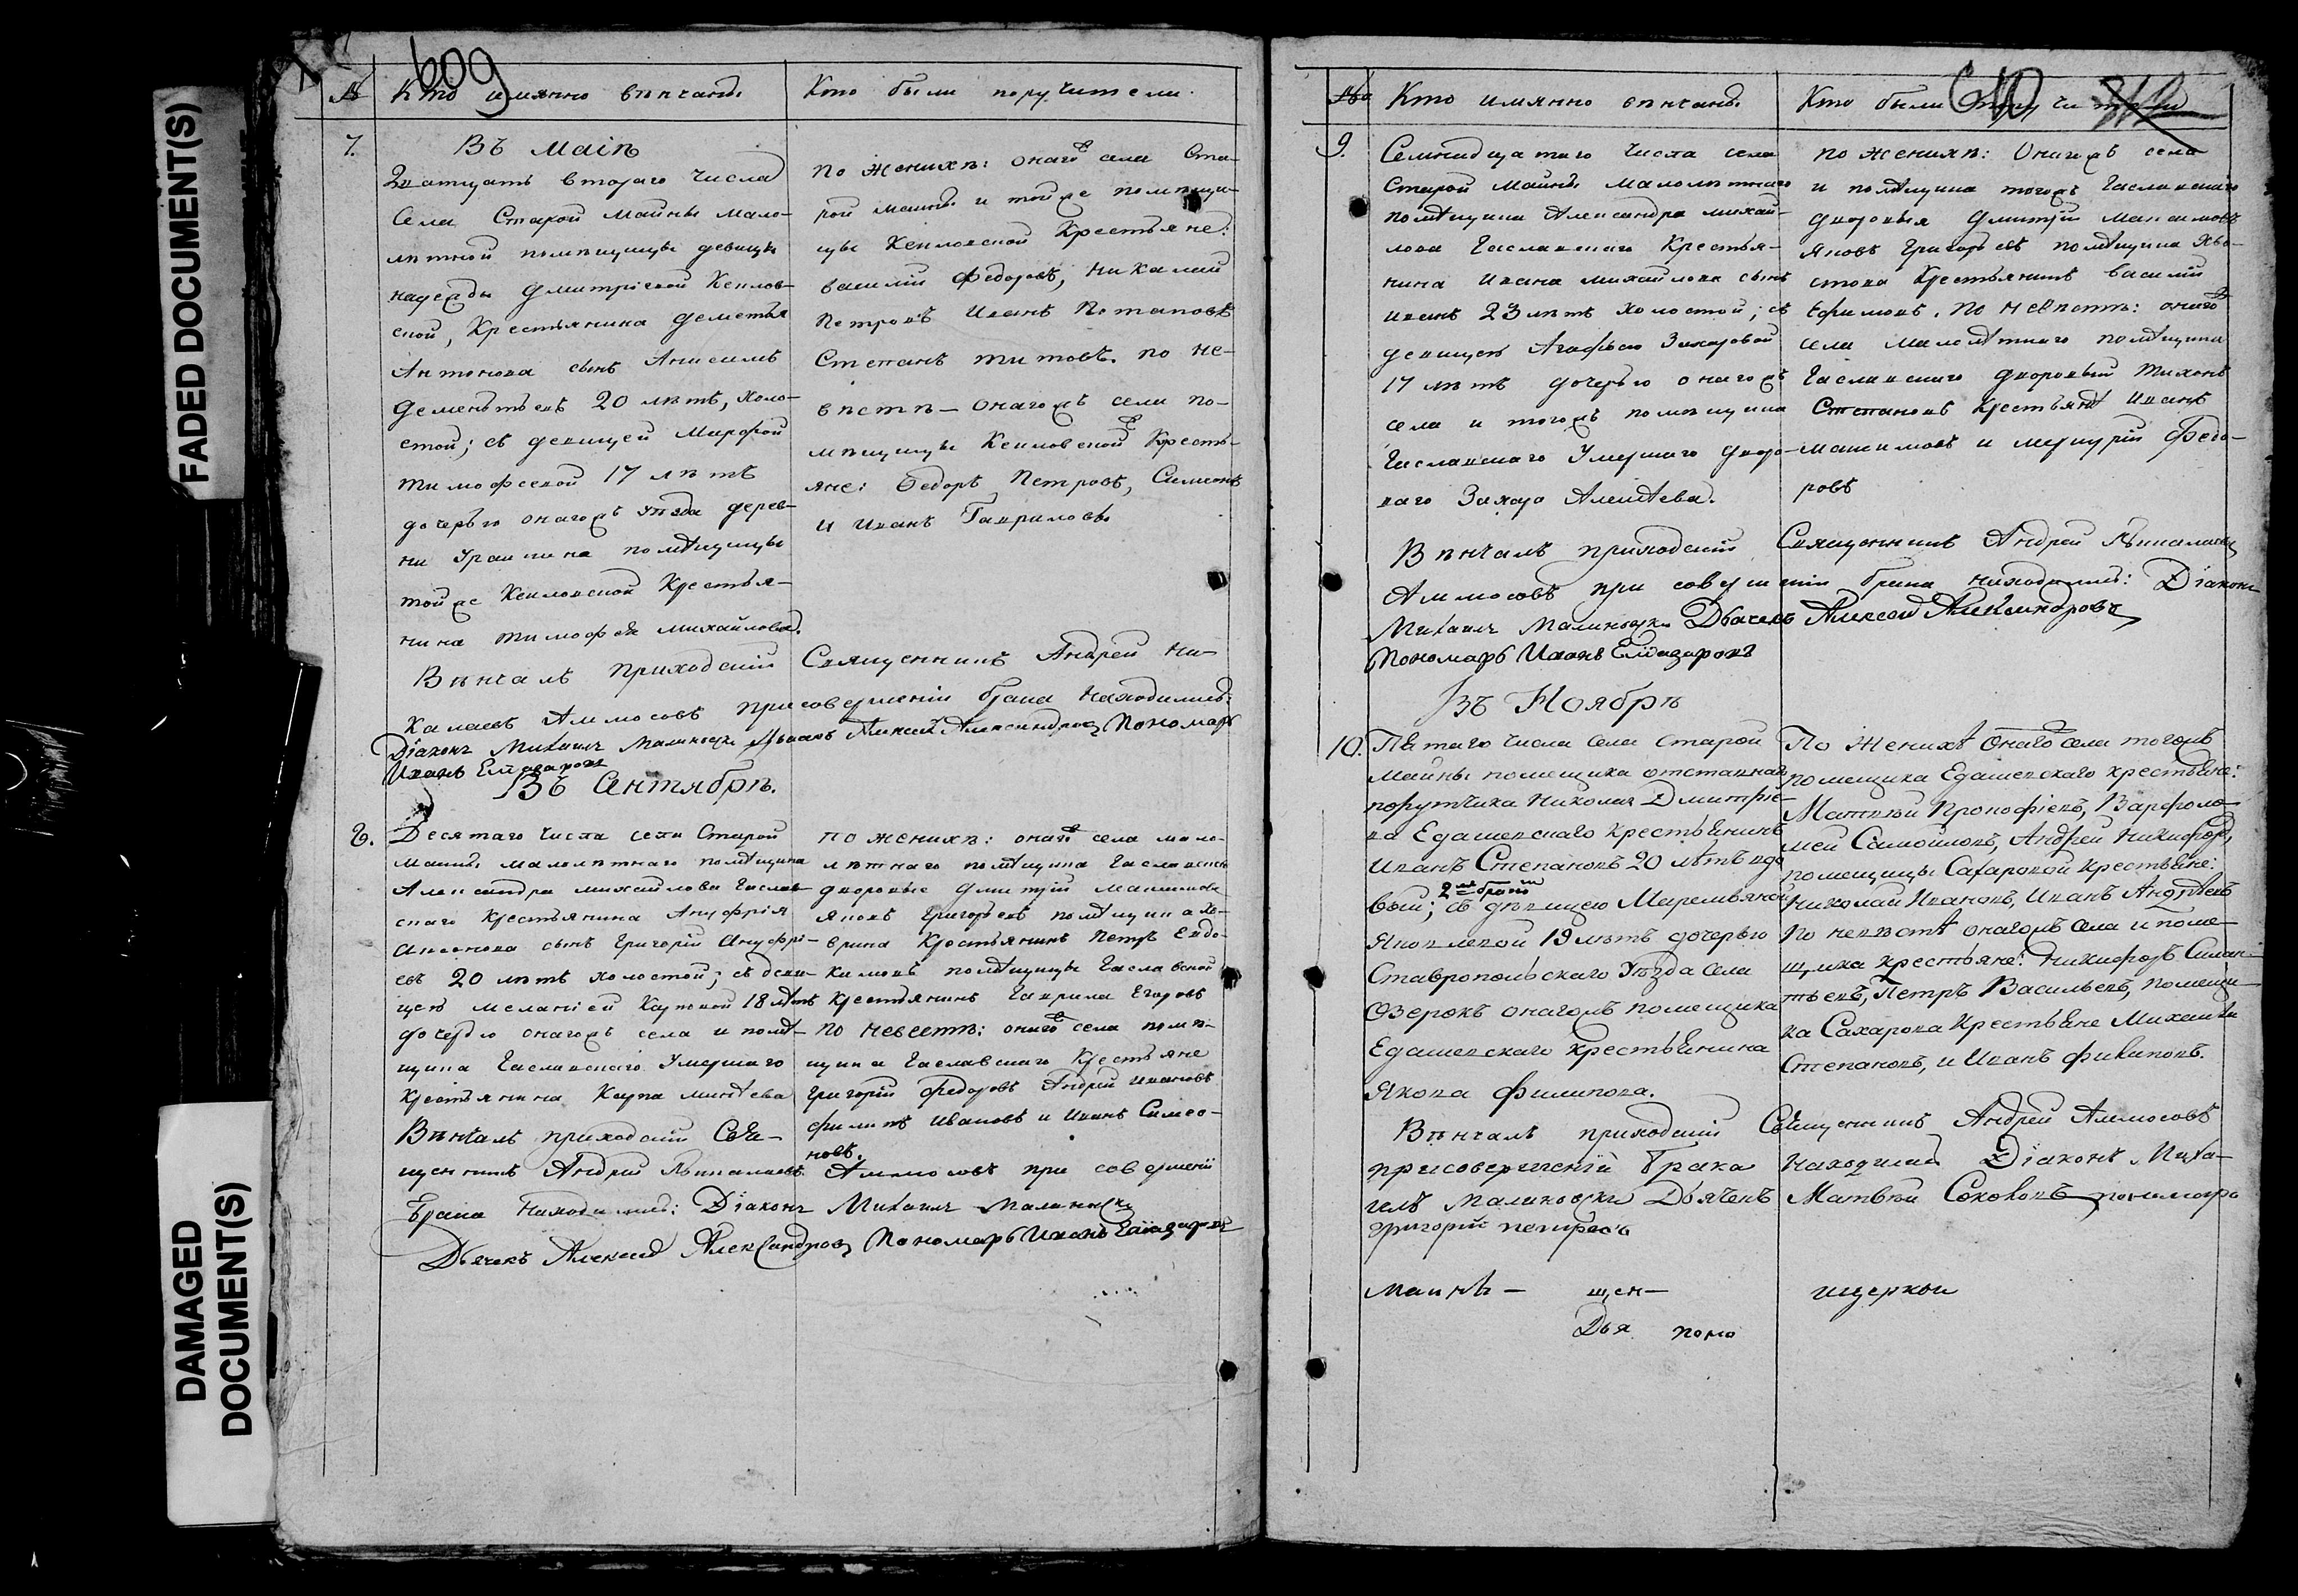 FADED DOCUMENT(S)
DAMAGED
DOCUMENT(S)
609
№ Кто имянно венчаны
Кто были поручители.
7. Въ Маіѣ
Дватцать втораго числа
Села Старой Майны мало-
лѣтной помѣщицы девицы
надежды Дмитріевой
ской, Крестьянина Дементья
Антонова сынъ Анисимъ
Дементьевъ 20 лѣтъ, холо-
стой; съ девицей Марфой
Тимофеевой 17 лѣтъ
дочерью онагожъ уѣзда дерев-
ни помѣщицы
тойже Крестья-
нина Тимофея Михайлова.
по женихѣ: онаго села Ста-
рой майны и тойже помѣщи-
цы Крестьяне:
василій Федоровъ, Николай
Петровъ Иванъ Потаповъ
Степанъ Титовъ. по не-
вестѣ – онагожъ села по-
мѣщицы Кресть-
яне: Федоръ Петровъ, Симеонъ
и Иванъ Гавриловы
Вѣнчалъ приходскій Священникъ Андрей Ни-
колаевъ Аммосовъ при совершеніи брака находились:
Діаконъ Михаилъ Малиновскій Дьячекъ Алексей Александровъ Пономарь
Иванъ Елиазаровъ
Въ Сентябрѣ.
8. Десятаго числа села Старой
майны малолѣтнаго помѣщика
Александра михайлова Чеслав-
скаго крестьянина Ануфрія
сынъ Григорій Ануфрі-
евъ 20 лѣтъ холостой; съ деви-
цей меланіей Карповой 18 лѣтъ
дочерью онагожъ села и помѣ-
щика Чеславскаго умершаго
крестьянина Карпа
по женихѣ: онаго села мало-
лѣтнаго помѣщика
дворовые Дмитрій Максимовъ
Яковъ Григорьевъ помѣщика
Крестьянинъ Петръ Евдо-
кимовъ помѣщицы Чеславской
крестьянинъ Гаврила Егоровъ
по невестѣ: онаго села помѣ-
щика Чеславскаго Крестьяне
Григорій Федоровъ Андрей Ивановъ
филипъ Ивановъ и Иванъ Симео-
новъ.
Вѣнчалъ приходскій Свя-
щенникъ Андрей Николаевъ Аммосовъ при совершеніи
брака находились: Діаконъ Михаилъ Малиновскій
Дьячекъ Алексей Александровъ Пономарь Иванъ Елиазаровъ
610
Кто имянно венчаны
Кто были
9. Семнадцатаго числа села
Старой майны малолѣтнаго
помѣщика Александра михай-
лова Чеславскаго Крестья-
нина Ивана михайлова сынъ
иванъ 23 лѣтъ холостой; съ
девицей Агафьею Захаровой
17 лѣтъ дочерью онагожъ
села и тогожъ помѣщика
Чеславскаго умершаго дворо-
ваго Захара Алексѣева.
по женихѣ: Онагожъ села
и помѣщика тогожъ Чеславскаго
дворовыя Дмитрій Максимовъ
Яковъ Григорьевъ помѣщика Хво-
стова Крестьянинъ василій
Ефимовъ. по невестѣ: онаго
села малолѣтнаго помѣщика
Чеславскаго дворовый Тихонъ
Степановъ Крестьянѣ Иванъ
максимовъ и меркурій Федо-
ровъ
Вѣнчалъ приходскій Священникъ Андрей Николаевъ
Аммосовъ при совершеніи брака находились: Діаконъ
Михаилъ Малиновскій Дьячекъ Алексей Александровъ
Пономарь Иванъ Елиазаровъ
Въ Ноябрѣ
10. Пятаго числа села Старой
майны помещика отставнаго
порутчика Николая Дмитріе-
ва Едашевскаго крестьянинъ
Иванъ Степановъ 20 лѣтъ вдо-
вый; 2мъ бракомъ съ дѣвицею Маремьяной
Яковлевой 19 лѣтъ дочерью
Ставропольскаго Уѣзда села
Озерокъ онагожъ помещика
Едашевскаго крестьянина
Якова Филипова.
По женихѣ онаго села тогожъ
помещика Едашевскаго крестьяне:
Матвѣй Прокофіевъ, Варфоло-
мей Самойловъ, Андрей Никифоровъ,
помещицы Сахаровой крестьяне:
Николай Ивановъ, Иванъ Андрѣевъ
По невѣстѣ онагожъ села и поме-
щика крестьяне: Никифоръ
Петръ Васильевъ, помещи-
ка Сахарова крестьяне Михаила
Степановъ, и Иванъ филиповъ.
Вѣнчалъ приходскій Священникъ Андрей Аммосовъ
при совершеніи брака находились Діаконъ Миха-
илъ Малиновскій Дьячекъ Матвѣй Соколовъ пономарь
Григорій петровъ
Маинѣ – щен – ицеркви
Дья поно